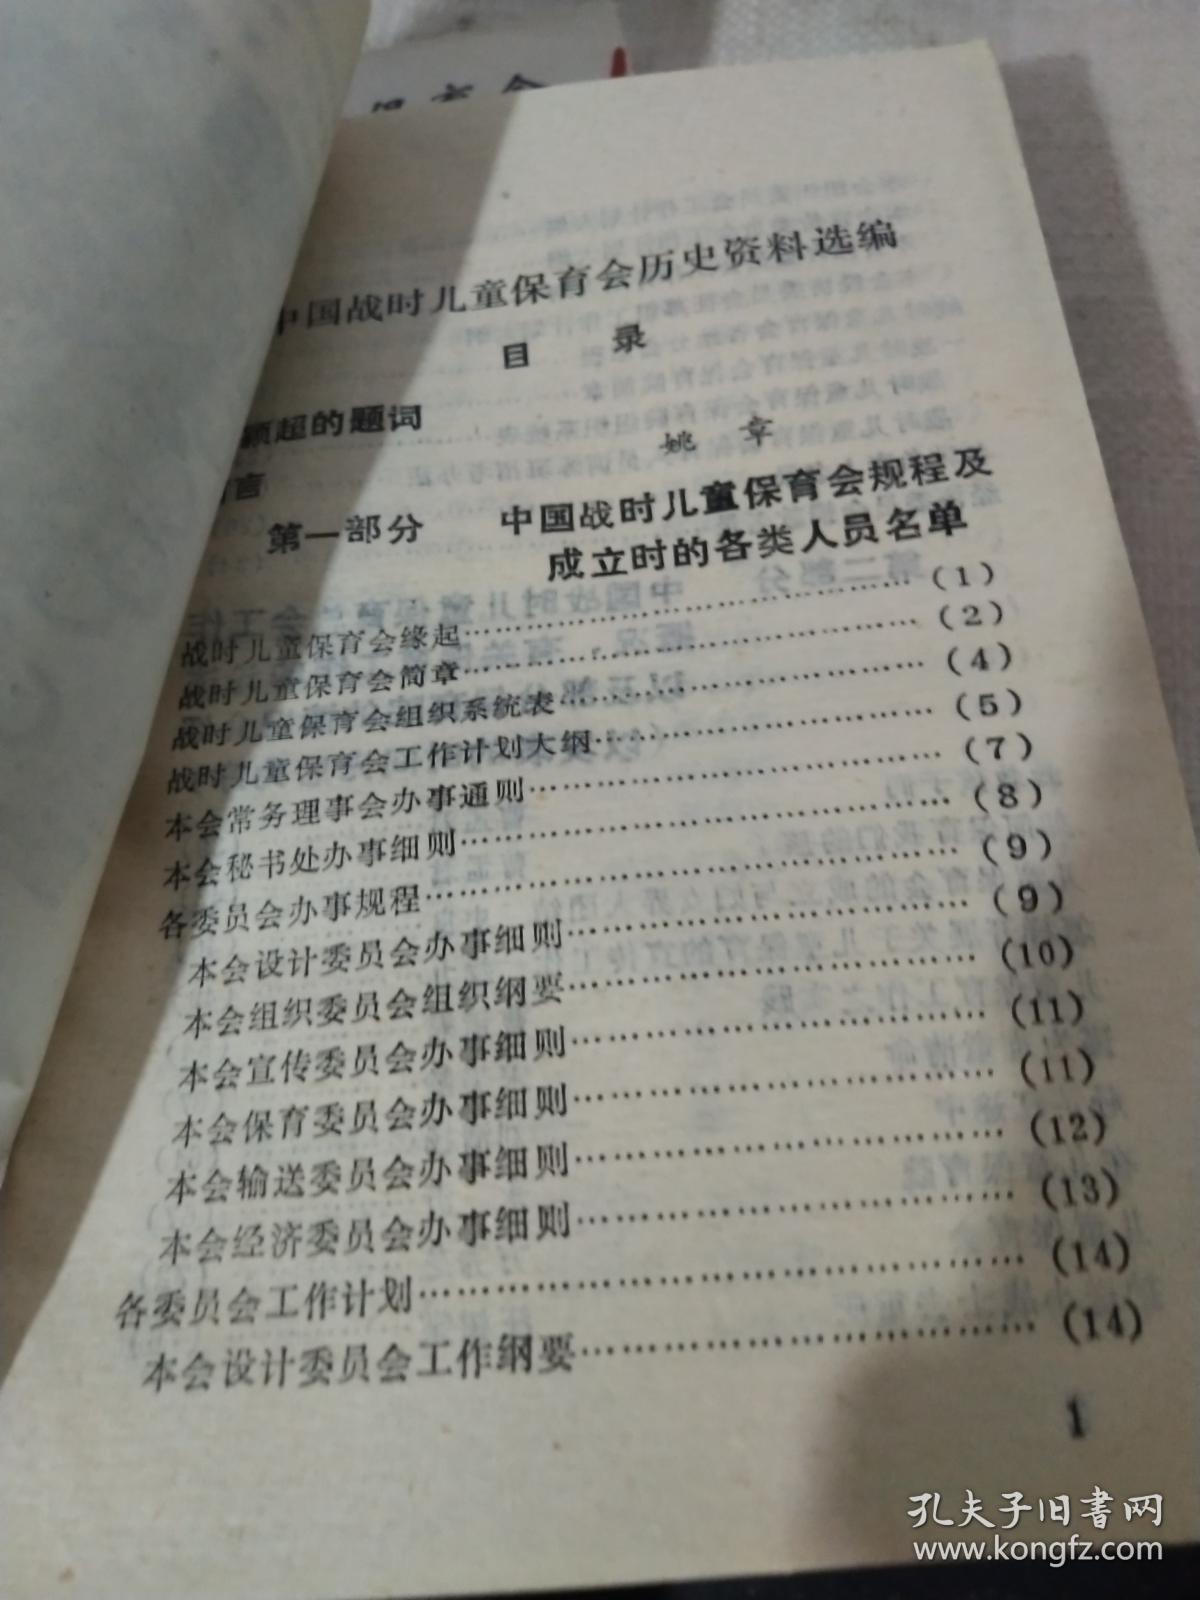 中国战时儿童保育会历史资料选编
目 录
颖超的题词
言
姚 章
第一部分 中国战时儿童保育会规程及
成立时的各类人员名单
战时儿童保育会缘起……………………………………(1)
战时儿童保育会简章……………………………………(2)
战时儿童保育会组织系统表……………………………(4)
战时儿童保育会工作计划大纲…………………………(5)
本会常务理事会办事通则………………………………(7)
本会秘书处办事细则……………………………………(8)
各委员会办事规程………………………………………(9)
本会设计委员会办事细则………………………………(9)
本会组织委员会组织纲要………………………………(10)
本会宣传委员会办事细则………………………………(11)
本会保育委员会办事细则………………………………(11)
本会输送委员会办事细则………………………………(12)
本会经济委员会办事细则………………………………(13)
各委员会工作计划………………………………………(14)
本会设计委员会工作纲要………………………………(14)
1
孔夫子旧书网
www.kongfz.com